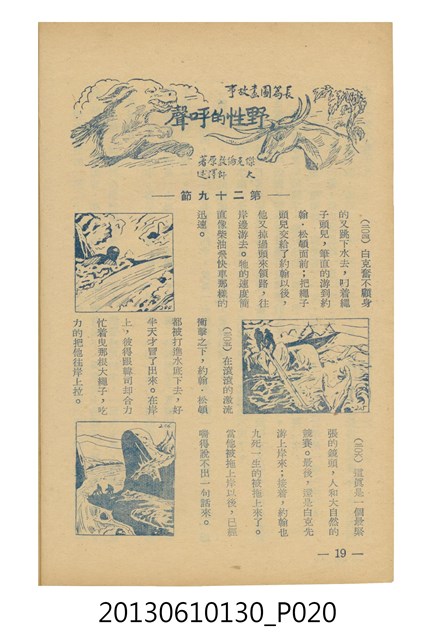 長篇圖畫故事
野性的呼聲
傑克倫敦原著
大部譯述
第二十九節
白克奮不顧身
的又跳下水去,叼着繩
子頭兒,筆直的游到約
翰·松頓面前;把繩子
頭兒交給了約翰以後,
他又掉過頭來領路,往
岸邊游去。牠的速度簡
直像柴油飛快車那樣的
迅速。
在滾滾的激流
衝擊之下,約翰·松頓
都被打進水底下去,好
半天才冒了出來。在岸
上,彼得跟韓司却合力
忙着曳那根大繩子,吃
力的把他往岸上拉。
這眞是一個最緊
張的鏡頭,人和大自然的
競賽。最後,還是白克先
游上岸來;接着,約翰也
九死一生的被拖上來了。
當他被拖上岸以後,已經
嚇得說不出一句話來。
— 19 —
20130610130_P020